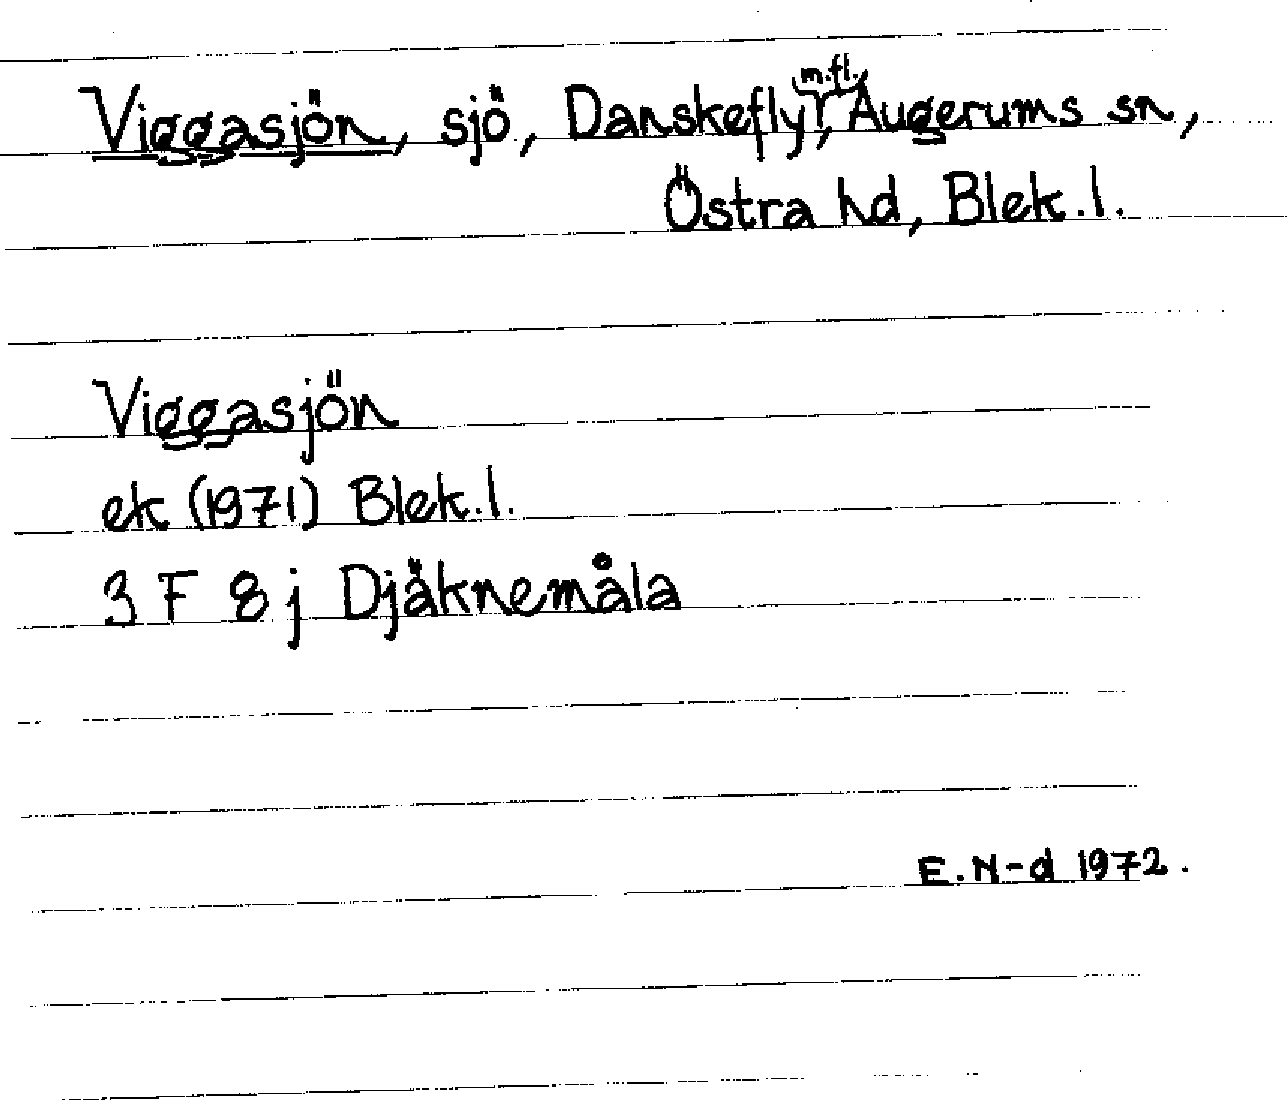 Viggasjön, sjö, Danskefly m.fl., Augerums sn,
Östra hd, Blek.l.
Viggasjön
ek (1971) Blek.l.
3 F 8 j Djäknemåla
E.N-d 1972.